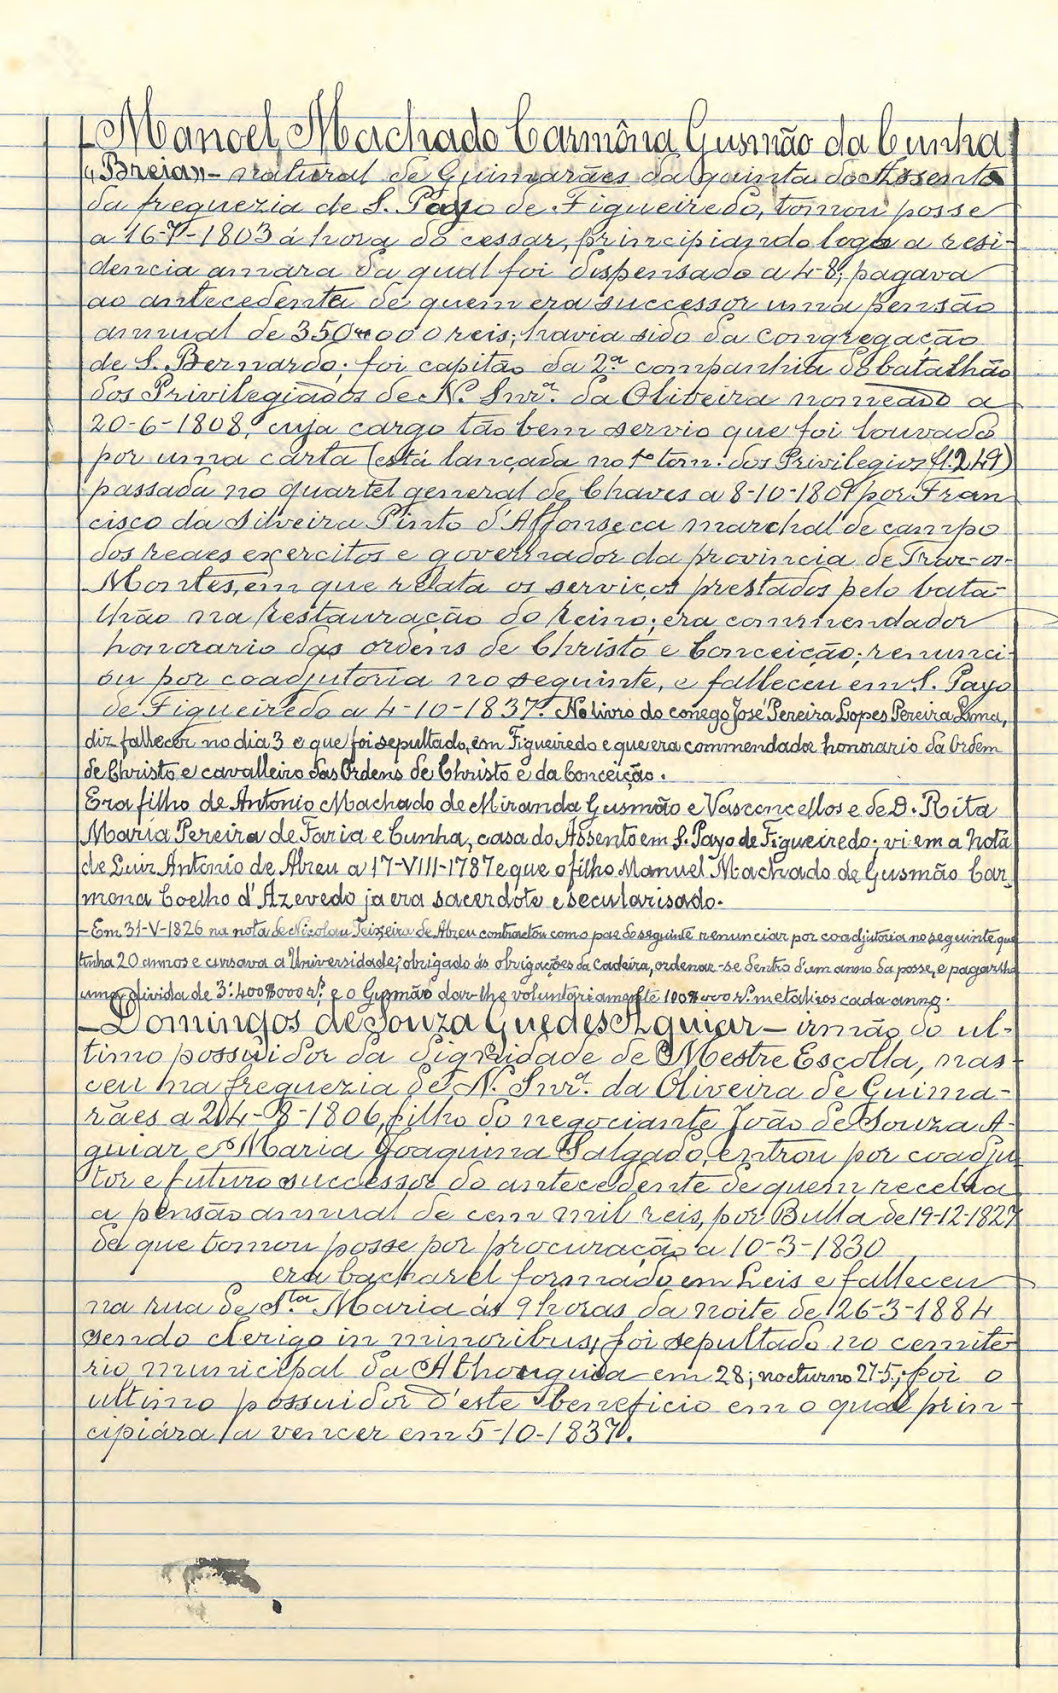 - Manoel Machado Carmôna Gusmão da Cunha
"Breia" - natural de Guimarães da quinta do Assento
da freguezia de S. Payo de Figueiredo, tomou posse
a 16-7-1803 á hora do cessar, principiando logo a resi-
dencia amara da qual foi dispensado a 4-8; pagava
ao antecedente de quem era successor uma pensão
annual de 350$000 reis; havia sido da congregação
de S. Bernardo; foi capitão da 2ª companhia do batalhão
dos Privilegiados de N. Snrª. da Oliveira nomeado a
20-6-1808, cuja cargo tão bem servio que foi louvado
por uma carta (está lançada no 1º tom. dos Privilegios fl. 249)
passada no quartel general de Chaves a 8-10-1809 por Fran
cisco da Silveira Pinto d'Affonseca marchal de campo
dos reaes exercitos e governador da provincia de Traz-os-
Montes, em que relata os serviços prestados pelo bata-
lhão na restauração do reino; era commendador
honorario das ordens de Christo e Conceição; renunci-
ou por coadjutoria no seguinte, e falleceu em S. Payo
de Figueiredo a 4-10-1837. No livro do conego José Pereira Lopes Pereira Lima,
diz fallecer no dia 3 e que foi sepultado em Figueiredo e que era commendador honorario da Ordem
de Christo e cavalleiro das Ordens de Christo e da Conceição.
Era filho de Antonio Machado de Miranda Gusmão e Vasconcellos e de D. Rita
Maria Pereira de Faria e Cunha, casa do Assento em S. Payo de Figueiredo; vi em a nota
de Luiz Antonio de Abreu a 17-VIII-1787 e que o filho Manuel Machado de Gusmão Car-
mona Coelho d'Azevedo ja era sacerdote e secularisado.
- Em 31-V-1826 na nota de Nicolau Teixeira de Abreu contractou com o pae do seguinte renunciar por coadjutoria no seguinte que
tinha 20 annos e cursava a Universidade; obrigado ás obrigações da cadeira, ordenar-se dentro d'um anno da posse, e pagar lhe
uma divida de 3:400$000 rs. e o Gusmão dar-lhe voluntariamente 100$000 rs. metalicos cada anno.
- Domingos de Souza Guedes Aguiar - irmão do ul-
timo possuidor da dignidade de Mestre Escolla, nas-
ceu na freguezia de N. Snrª. da Oliveira de Guima-
rães a 24-8-1806, filho do negociante João de Souza A-
guiar e Maria Joaquina Salgado, entrou por coadju
tor e futuro successor do antecedente de quem recebia
a pensão annual de cem mil reis, por Bulla de 19-12-1827
de que tomou posse por procuração a 10-3-1830
era bacharel formado em Leis e falleceu
na rua de Sta. Maria ás 9 horas da noite de 26-3-1884
sendo clerigo in minoribus; foi sepultado no cemite-
rio municipal da Athouguia em 28; nocturno 27-5; foi o
ultimo possuidor d'este beneficio em o qual prin-
cipiára a vencer em 5-10-1837.